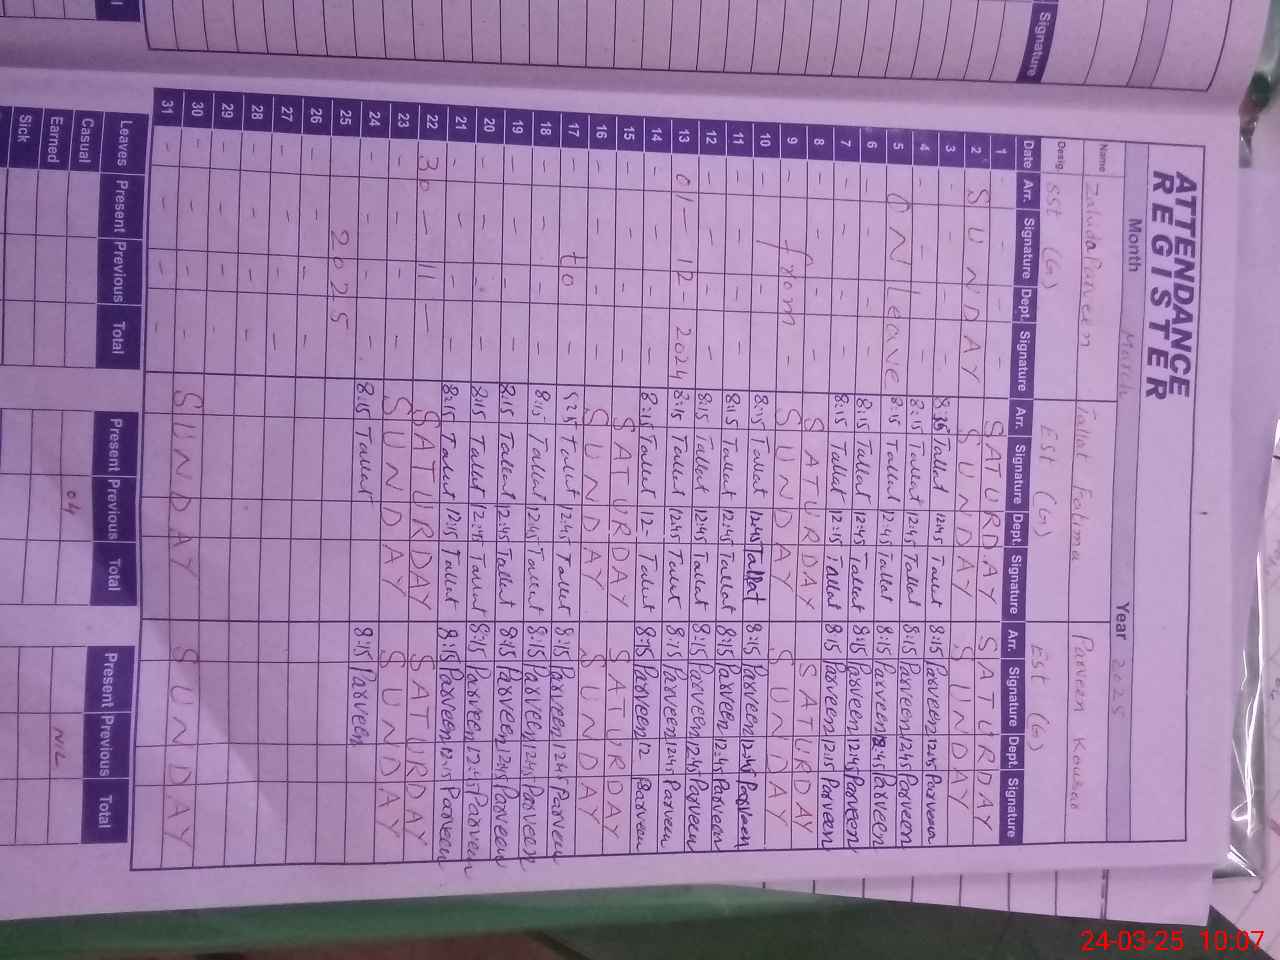 Signature
ATTENDANCE
REGISTER
Month March Year 2025
Name Zahida Parveen Tallat Fatima Parveen Kousar
Desig. SST (G) EST (G) EST (G)
Date Arr. Signature Dept. Signature Arr. Signature Dept. Signature Arr. Signature Dept. Signature
1 - - - - SATURDAY SATURDAY
2 SUNDAY SUNDAY SUNDAY
3 - - - - 8:15 Tallat 12:45 Tallat 8:15 Parveen 12:45 Parveen
4 - - - - 8:15 Tallat 12:45 Tallat 8:15 Parveen 12:45 Parveen
5 ON Leave 8:15 Tallat 12:45 Tallat 8:15 Parveen 12:45 Parveen
6 - - - - 8:15 Tallat 12:45 Tallat 8:15 Parveen 12:45 Parveen
7 - - - - 8:15 Tallat 12:15 Tallat 8:15 Parveen 12:15 Parveen
8 - - SATURDAY SATURDAY
9 - from - SUNDAY SUNDAY
10 - - - - 8:15 Tallat 12:45 Tallat 8:15 Parveen 12:45 Parveen
11 - - - - 8:15 Tallat 12:45 Tallat 8:15 Parveen 12:45 Parveen
12 - - - - 8:15 Tallat 12:45 Tallat 8:15 Parveen 12:45 Parveen
13 01 - 12 - 2024 8:15 Tallat 12:45 Tallat 8:15 Parveen 12:45 Parveen
14 - - - - 8:15 Tallat 12- Tallat 8:15 Parveen 12 Parveen
15 - - - - SATURDAY SATURDAY
16 - - - - SUNDAY SUNDAY
17 - - to - Tallat 12:45 Tallat 8:15 Parveen 12:45 Parveen
18 - - - - 8:15 Tallat 12:45 Tallat 8:15 Parveen 12:45 Parveen
19 - - - - 8:15 Tallat 12:45 Tallat 8:15 Parveen 12:45 Parveen
20 - - - - 8:15 Tallat 12:45 Tallat 8:15 Parveen 12:45 Parveen
21 - - - - 8:15 Tallat 12:15 Tallat 8:15 Parveen 12:15 Parveen
22 30 - 11 - SATURDAY SATURDAY
23 - - - - SUNDAY SUNDAY
24 - - - - 8:15 Tallat 8:15 Parveen
25 2025
26 - - - -
27 - - - -
28 - - - -
29 - - - -
30 - - - - SUNDAY SUNDAY
31 - - - -
Leaves Present Previous Total Present Previous Total Present Previous Total
Casual
Earned 04 NIL
Sick
24-03-25 10:07